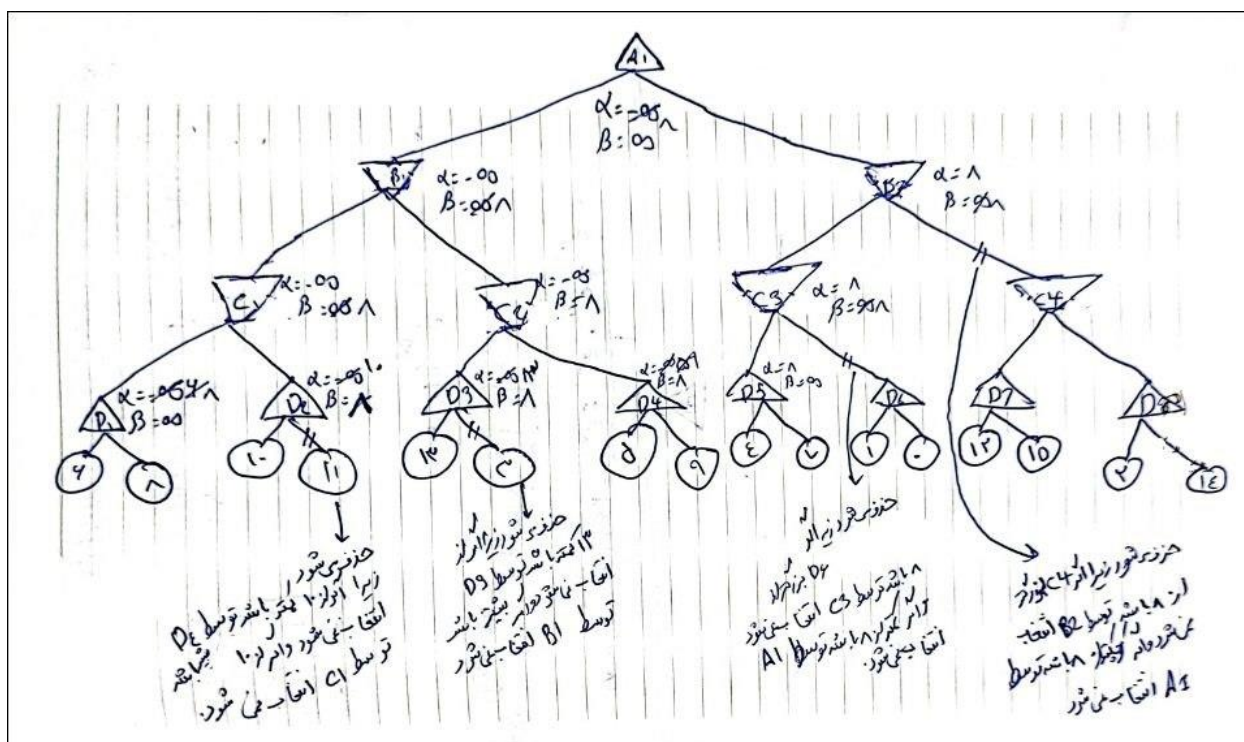 A1
α=-∞ ۸
β=∞
B1
α=-∞
β=∞ ۸
B2
α=۸
β=∞ ۸
C1
α=-∞
β=∞ ۸
C2
α=-∞
β=۸
C3
α=۸
β=∞ ۸
C4
D1
α=-∞ ۶ ۸
β=∞
D2
α=-∞ ۱۰
β=۸
D3
α=-∞ ۱۳
β=۸
D4
α=-∞ ۵ ۹
β=۸
D5
α=۸
β=∞
D6
D7
D8
۶
۸
۱۰
۱۱
۱۳
۵
۹
٤
۷
۱
۰
۱۲
۱۵
۲
۱٤
حذف می شود
زیرا اگر از ۱۰ کمتر باشد توسط
انتخاب نمی شود و اگر از ۱۰
باشد
توسط C1 انتخاب نمی شود.
حذف می شود زیرا اگر از
۱۳ کمتر باشد توسط D3
انتخاب نمی شود و اگر بیشتر باشد
توسط B1 انتخاب نمی شود
حذف می شود زیرا اگر
D6 بزرگتر از
۸ باشد توسط C3 انتخاب نمی شود
و اگر کمتر از ۸ باشد توسط A1
انتخاب نمی شود.
حذف می شود زیرا اگر C4 بزرگتر
از ۸ باشد توسط B2 انتخاب
نمی شود و اگر کمتر از ۸ باشد توسط
A1 انتخاب نمی شود